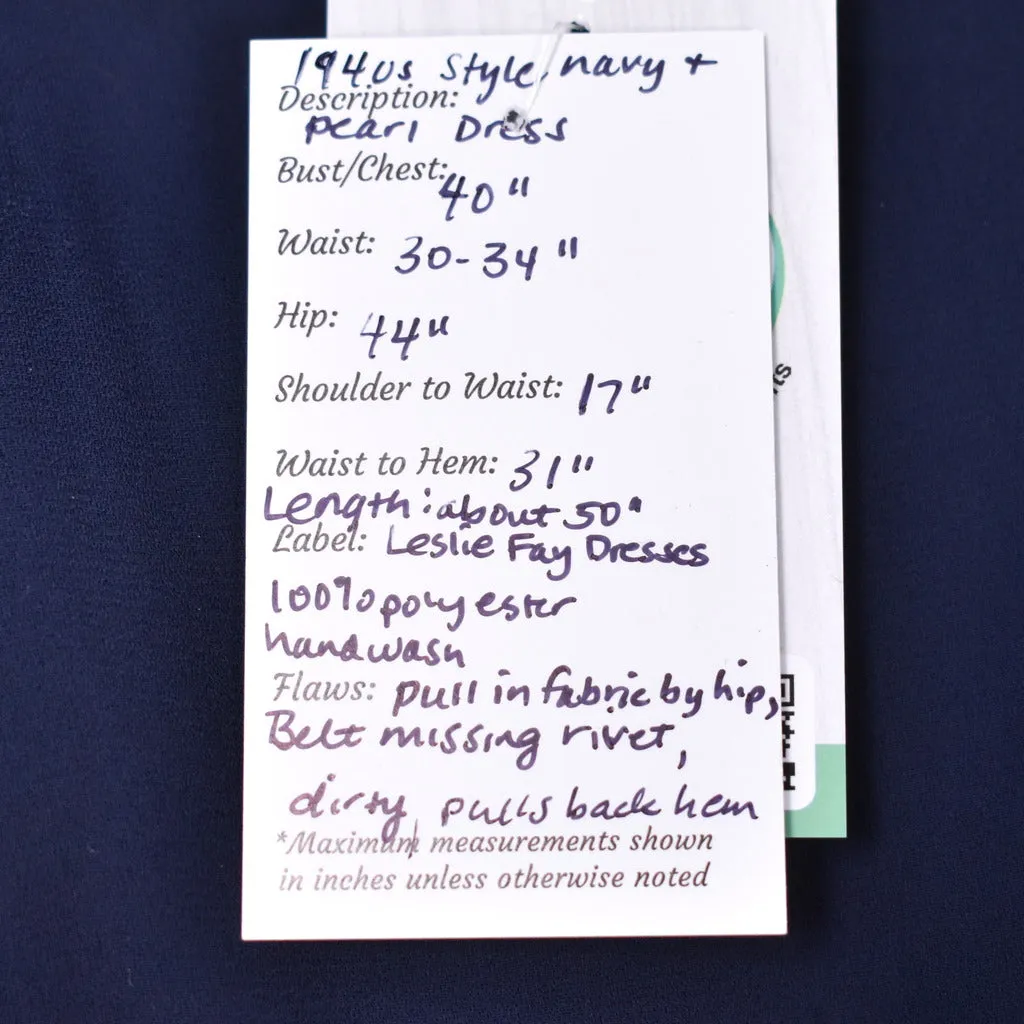 1940s Style, navy +
Description:
pearl Dress
Bust/Chest: 40"
Waist: 30-34"
Hip: 44"
Shoulder to Waist: 17"
Waist to Hem: 31"
Length: about 50"
Label: Leslie Fay Dresses
100% polyester
handwash
Flaws: pull in fabric by hip,
Belt missing rivet,
dirty, pulls back hem
*Maximum measurements shown
in inches unless otherwise noted